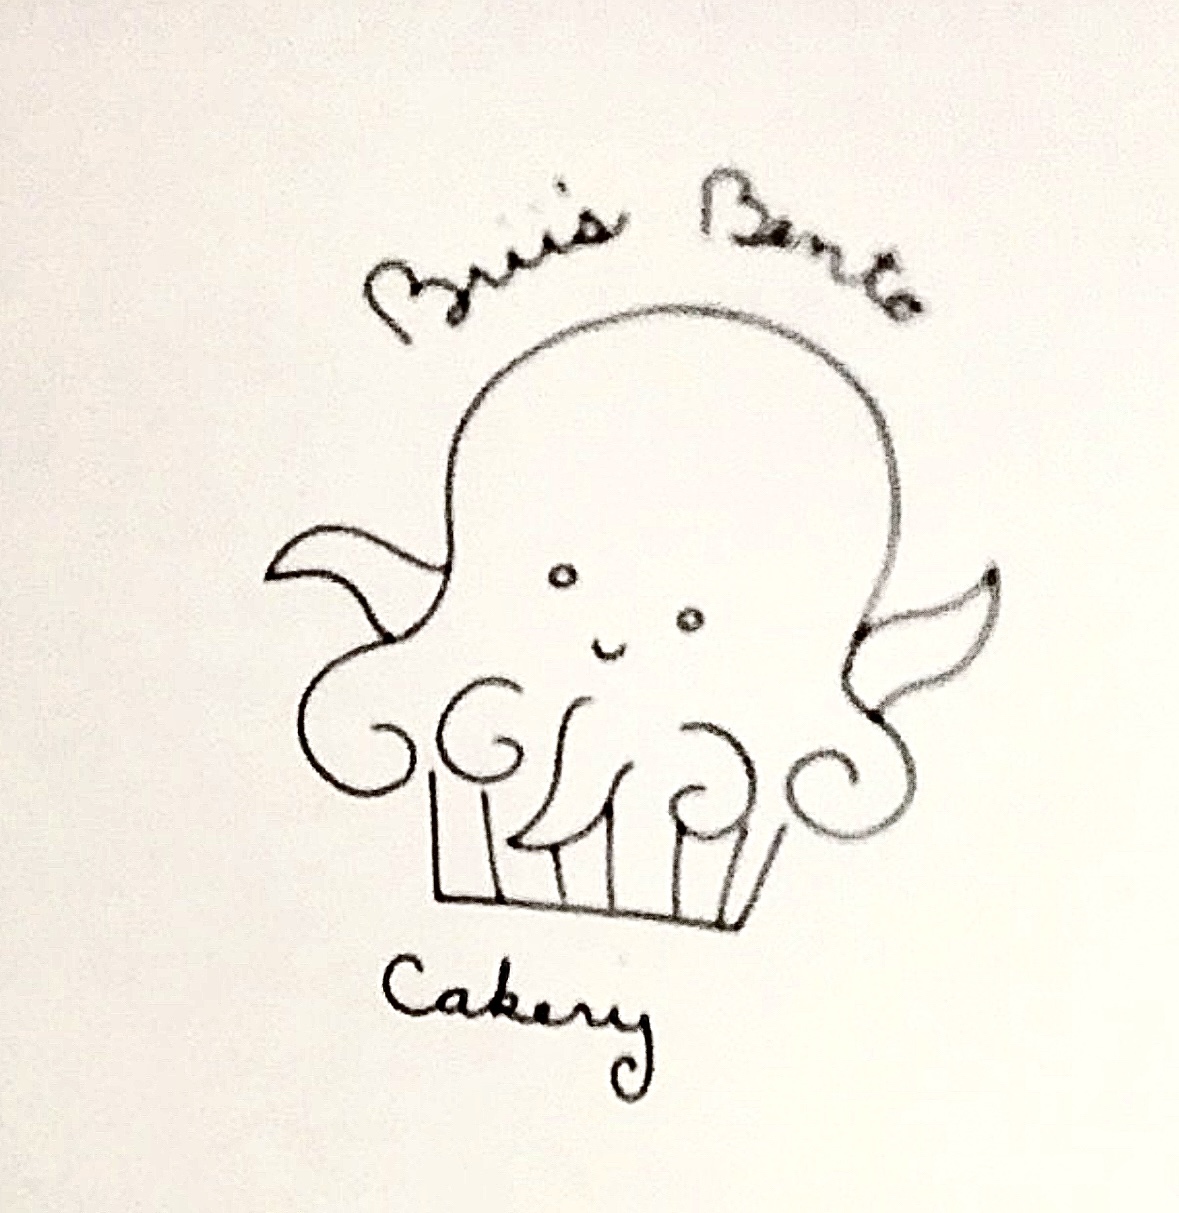 Brii's Bento
Cakery